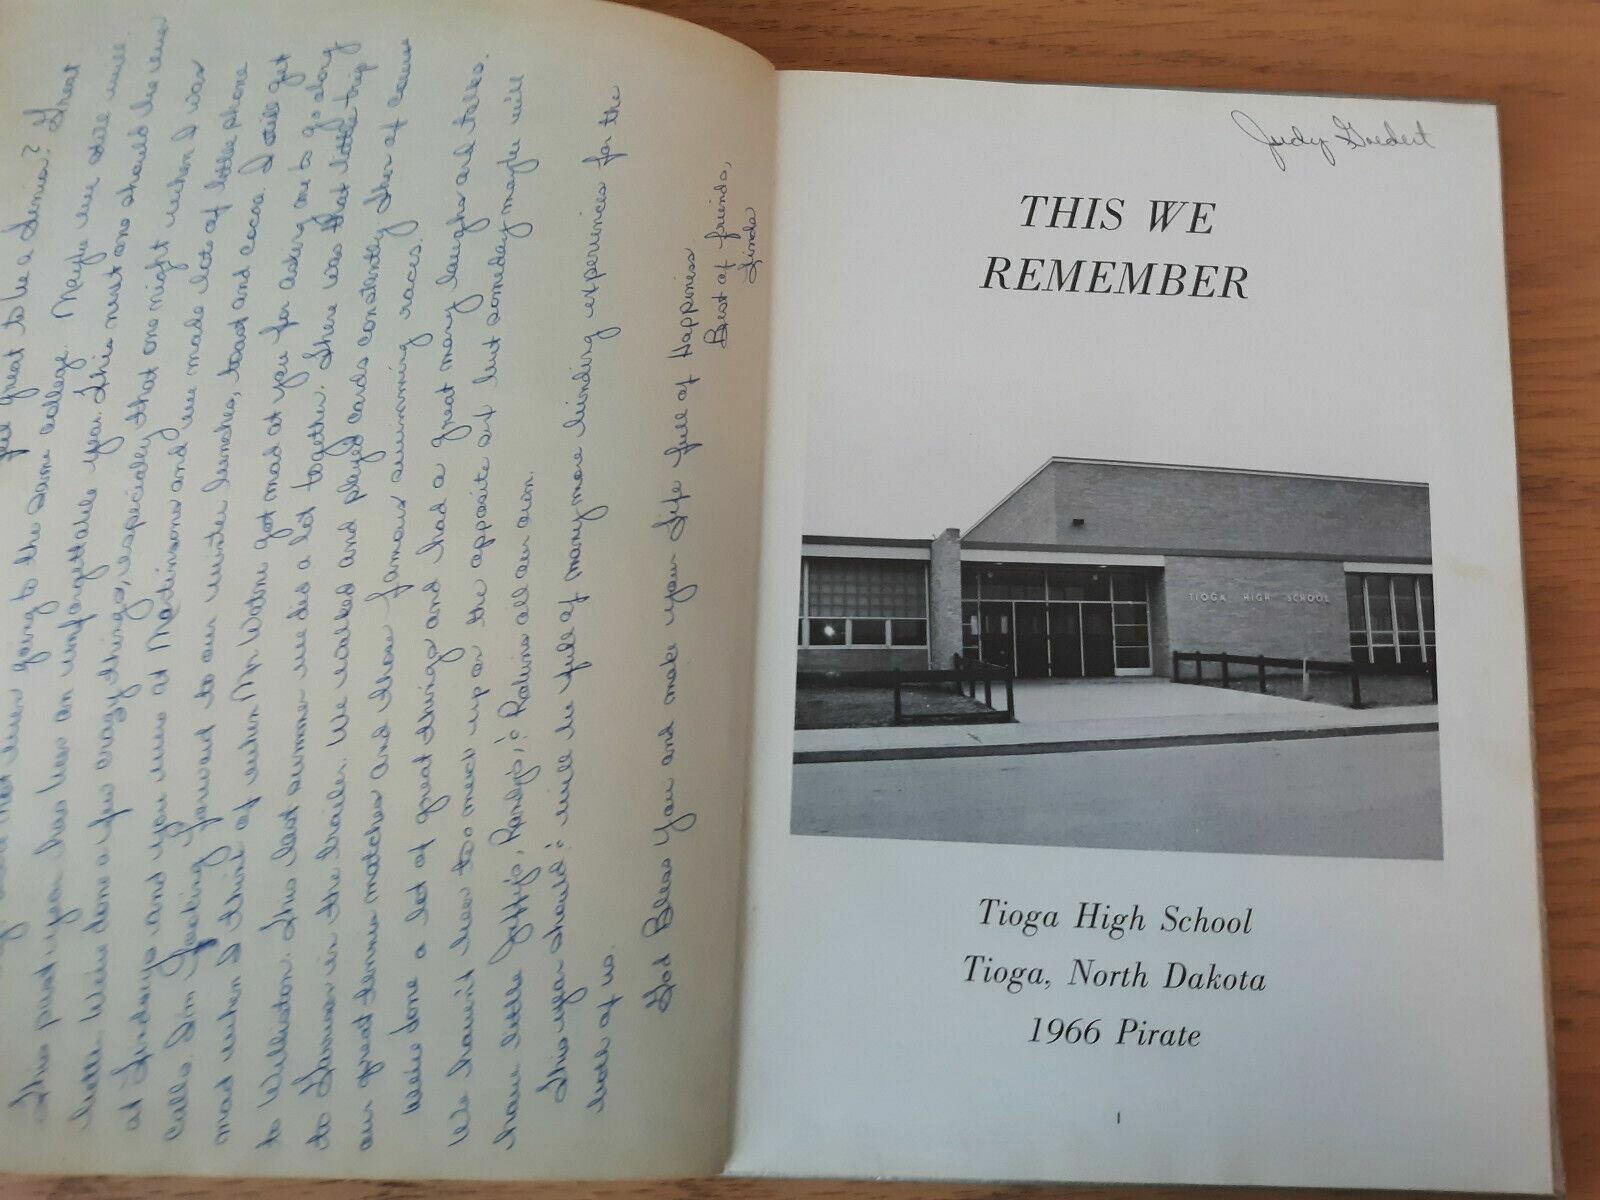 feel great to be a Senior? Great
going to the same college. Maybe we
This past year has been an unforgettable year. This next one should be even
better. We've done a few crazy things, especially that one night when I was
at Lindsays and you were at Martinsons and we made lots of little phone
calls. I'm looking forward to our winter lunches, toast and cocoa. I still get
mad when I think of when Mr. got mad at you for asking me to go along
to Williston. This last summer we did a lot together. There was that little trip
to in the trailer. We walked and played cards constantly then of course
our great tennis matches and those famous swimming races.
We've done a lot of great things and had a great many laughs and talks.
We haven't been too much up on the opposite sex but someday maybe will
have little Jeffys, Randys, & Robins all our own.
This year should & will be full of many more binding experiences for the
both of us.
God Bless You and make your Life full of Happiness
Best of friends,
Linda
Judy Goedert
THIS WE
REMEMBER
TIOGA HIGH SCHOOL
Tioga High School
Tioga, North Dakota
1966 Pirate
1